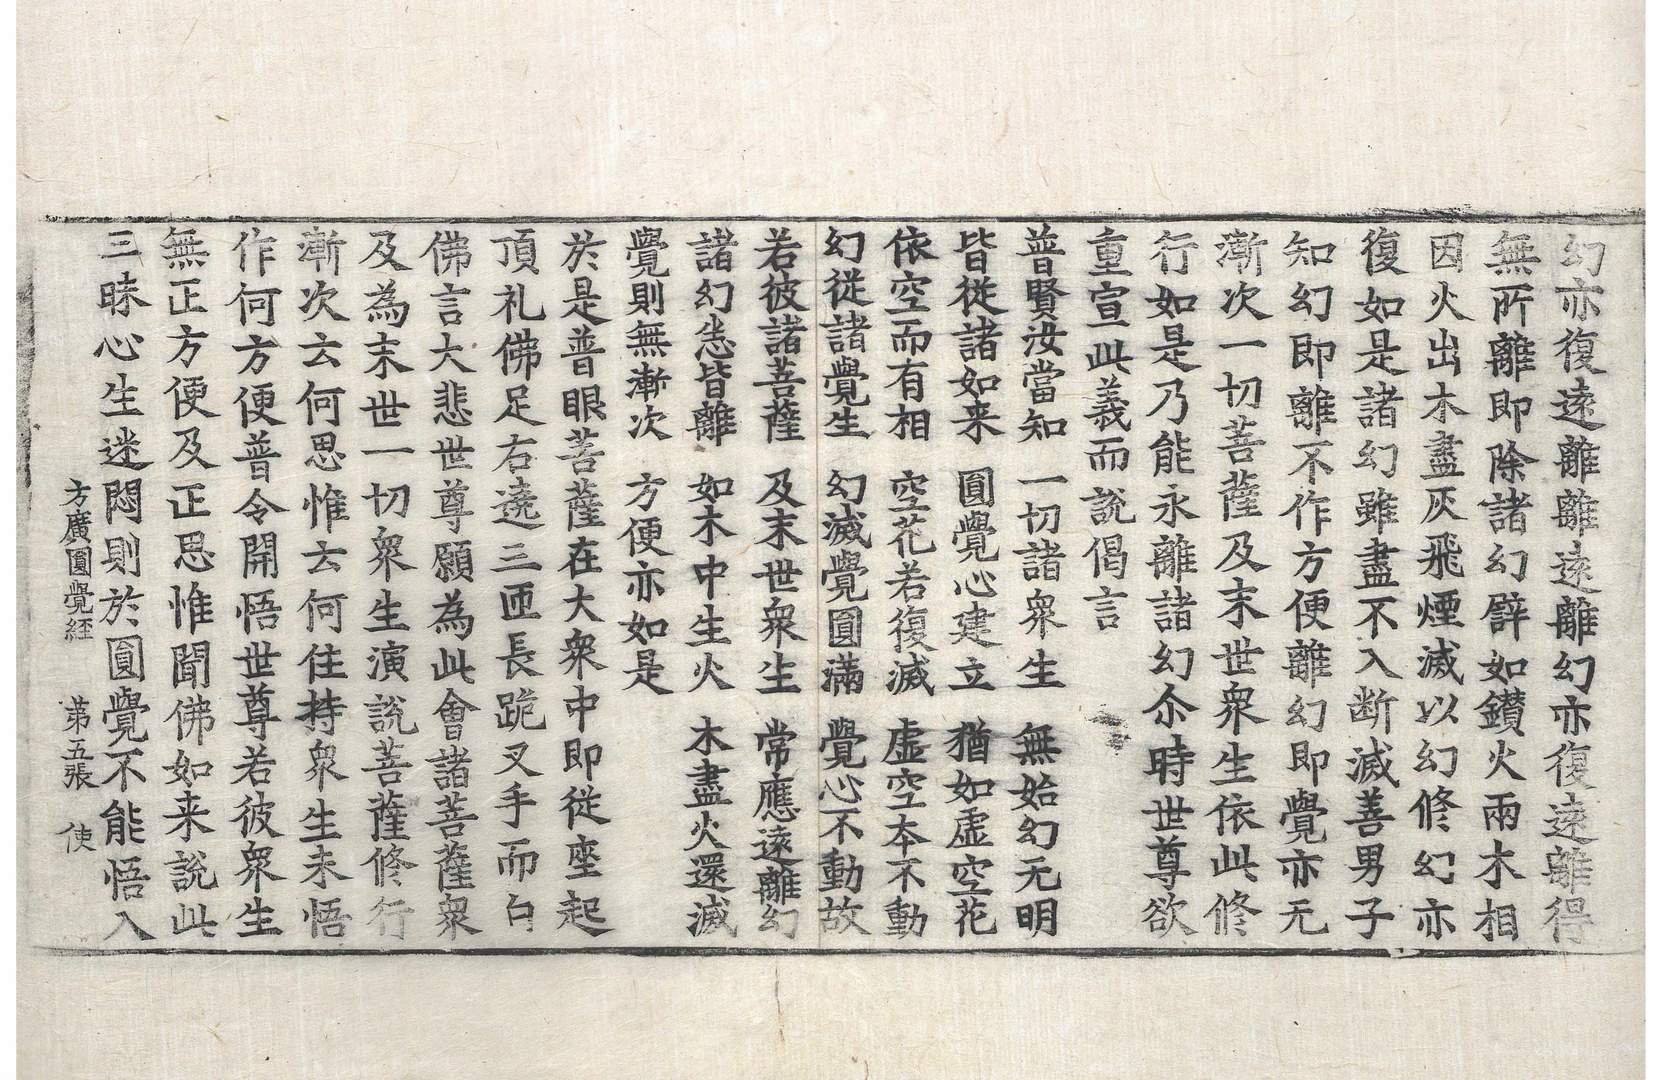 幻亦復遠離離遠離幻亦復遠離得
無所離即除諸幻譬如鑽火兩木相
因火出木盡灰飛煙滅以幻修幻亦
復如是諸幻雖盡不入断滅善男子
知幻即離不作方便離幻即覺亦无
漸次一切菩薩及末世衆生依此修
行如是乃能永離諸幻尒時世尊欲
重宣此義而說偈言
普賢汝當知 一切諸衆生 無始幻无明
皆從諸如来 圓覺心建立 猶如虛空花
依空而有相 空花若復滅 虛空本不動
幻從諸覺生 幻滅覺圓滿 覺心不動故
若彼諸菩薩 及末世衆生 常應遠離幻
諸幻悉皆離 如木中生火 木盡火還滅
覺則無漸次 方便亦如是
於是普眼菩薩在大衆中即從座起
頂礼佛足右遶三匝長跪叉手而白
佛言大悲世尊願為此會諸菩薩衆
及為末世一切衆生演說菩薩修行
漸次云何思惟云何住持衆生未悟
作何方便普令開悟世尊若彼衆生
無正方便及正思惟聞佛如来說此
三昧心生迷悶則於圓覺不能悟入
方廣圓覺経 苐五張 使